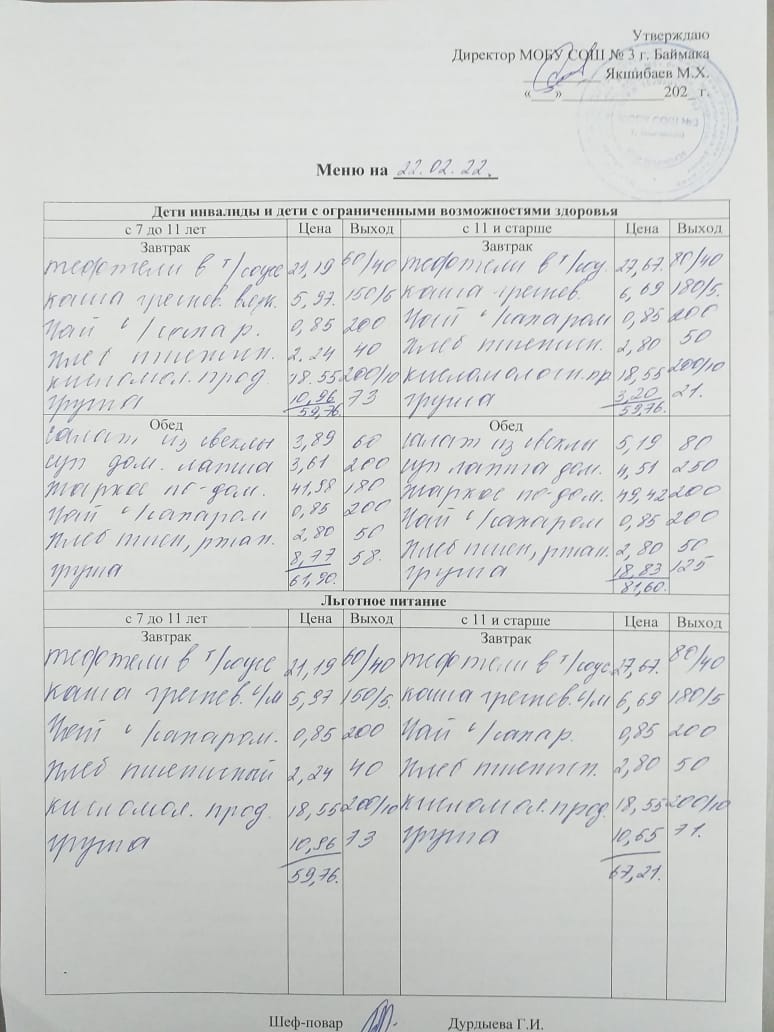 Утверждаю
Директор МОБУ СОШ № 3 г. Баймака
Якшибаев М.Х.
« » 202 г.
Меню на 22.02.22.
Дети инвалиды и дети с ограниченными возможностями здоровья
с 7 до 11 лет Цена Выход с 11 и старше Цена Выход
Завтрак Завтрак
тефтели в т/соусе 21,19 60/40 тефтели в т/соу. 27,67. 80/40
каша гречнев. вязк. 5,97. 150/5 каша гречнев. 6,69 180/5.
Чай с/сахар. 0,85 200 Чай с/сахаром 0,85 200
Хлеб пшеничн. 2,24 40 Хлеб пшеничн. 2,80 50
кисломол. прод. 18.55 200/10 кисломолочн. пр. 18,55 200/10
груша 10,96 73 груша 3,20 21.
59,76. 59,76.
Обед Обед
салат из свеклы 3,89 60 салат из свеклы 5,19 80
суп дом. лапша 3,61 200 суп лапша дом. 4,51 250
Жаркое по-дом. 41,98 180 Жаркое по-дом. 49,42 200
Чай с/сахаром 0,85 200 Чай с/сахаром 0,85 200
Хлеб пшен, ржан. 2,80 50 Хлеб пшен, ржан. 2,80 50
груша 8,77 58. груша 18,83 125
61,90. 81,60.
Льготное питание
с 7 до 11 лет Цена Выход с 11 и старше Цена Выход
Завтрак Завтрак
тефтели в т/соусе 21,19 60/40 тефтели в т/соусе 27,67. 80/40
каша гречнев. с/м 5,97 150/5. каша гречнев. с/м 6,69 180/5
Чай с/сахаром. 0,85 200 Чай с/сахар. 0,85 200
Хлеб пшеничный 2,24 40 Хлеб пшеничн. 2,80 50
кисломол. прод. 18,55 200/10 кисломол. прод. 18,55 200/10
груша 10,96 73 груша 10,65 71.
59,76. 67,21.
Шеф-повар Дурдыева Г.И.